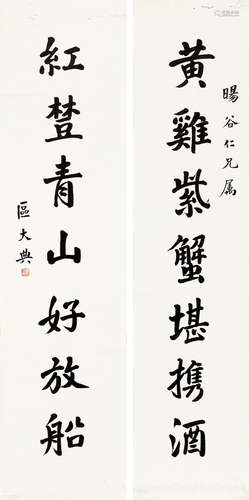 黄雞紫蟹堪携酒
暘谷仁兄属
紅椘青山好放船
區大典